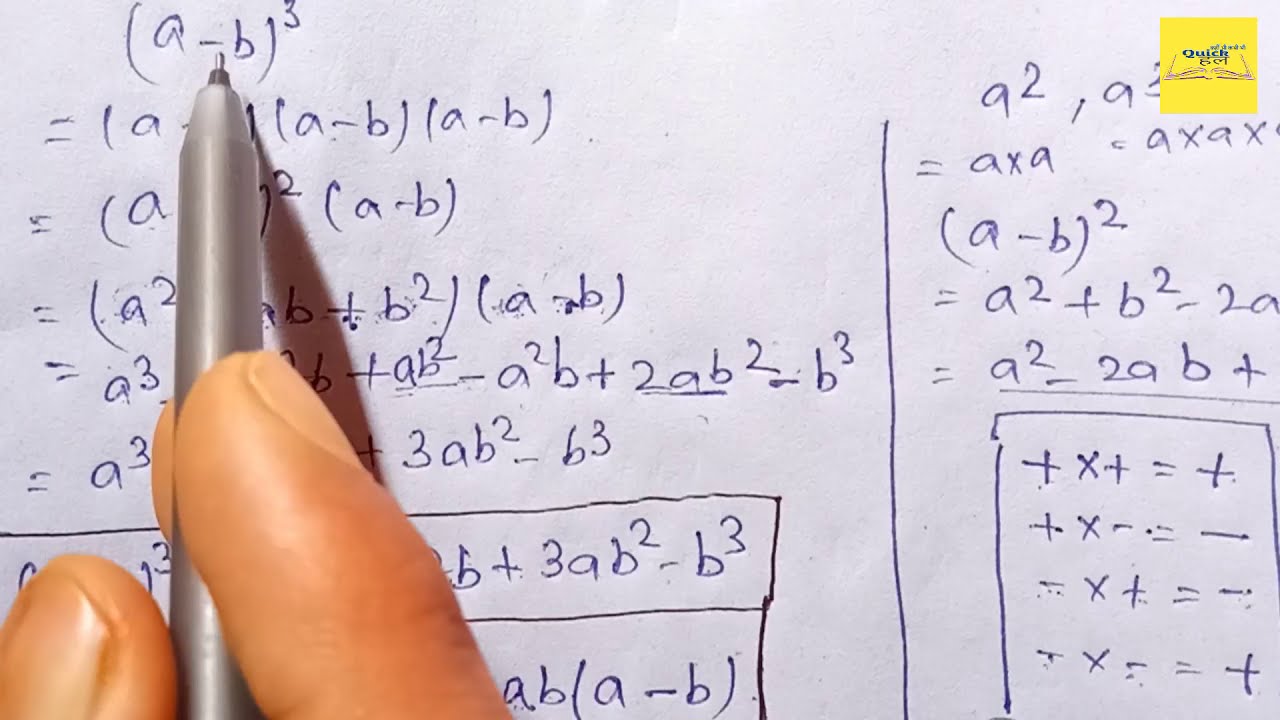 (a-b)³
= (a )(a-b)(a-b)
= (a )² (a-b)
= (a² ab + b²)(a-b)
= a³ ²b + ab² - a²b + 2ab² - b³
= a³ + 3ab² - b³
)³ b + 3ab² - b³
ab(a-b)
Quick
हल
a² , a³
= a×a = a×a×
(a-b)²
= a² + b² - 2a
= a² - 2ab +
+ × + = +
+ × - = -
- × + = -
- × - = +